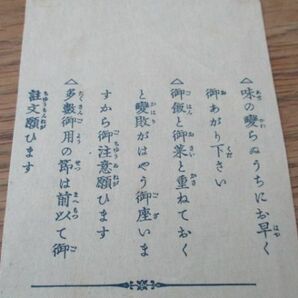 △味の變らぬうちにお早く
御あがり下さい
△御飯と御菜と重ねておく
と變敗がはやう御座いま
すから御注意願ひます
△多數御用の節は前以て御
註文願ひます